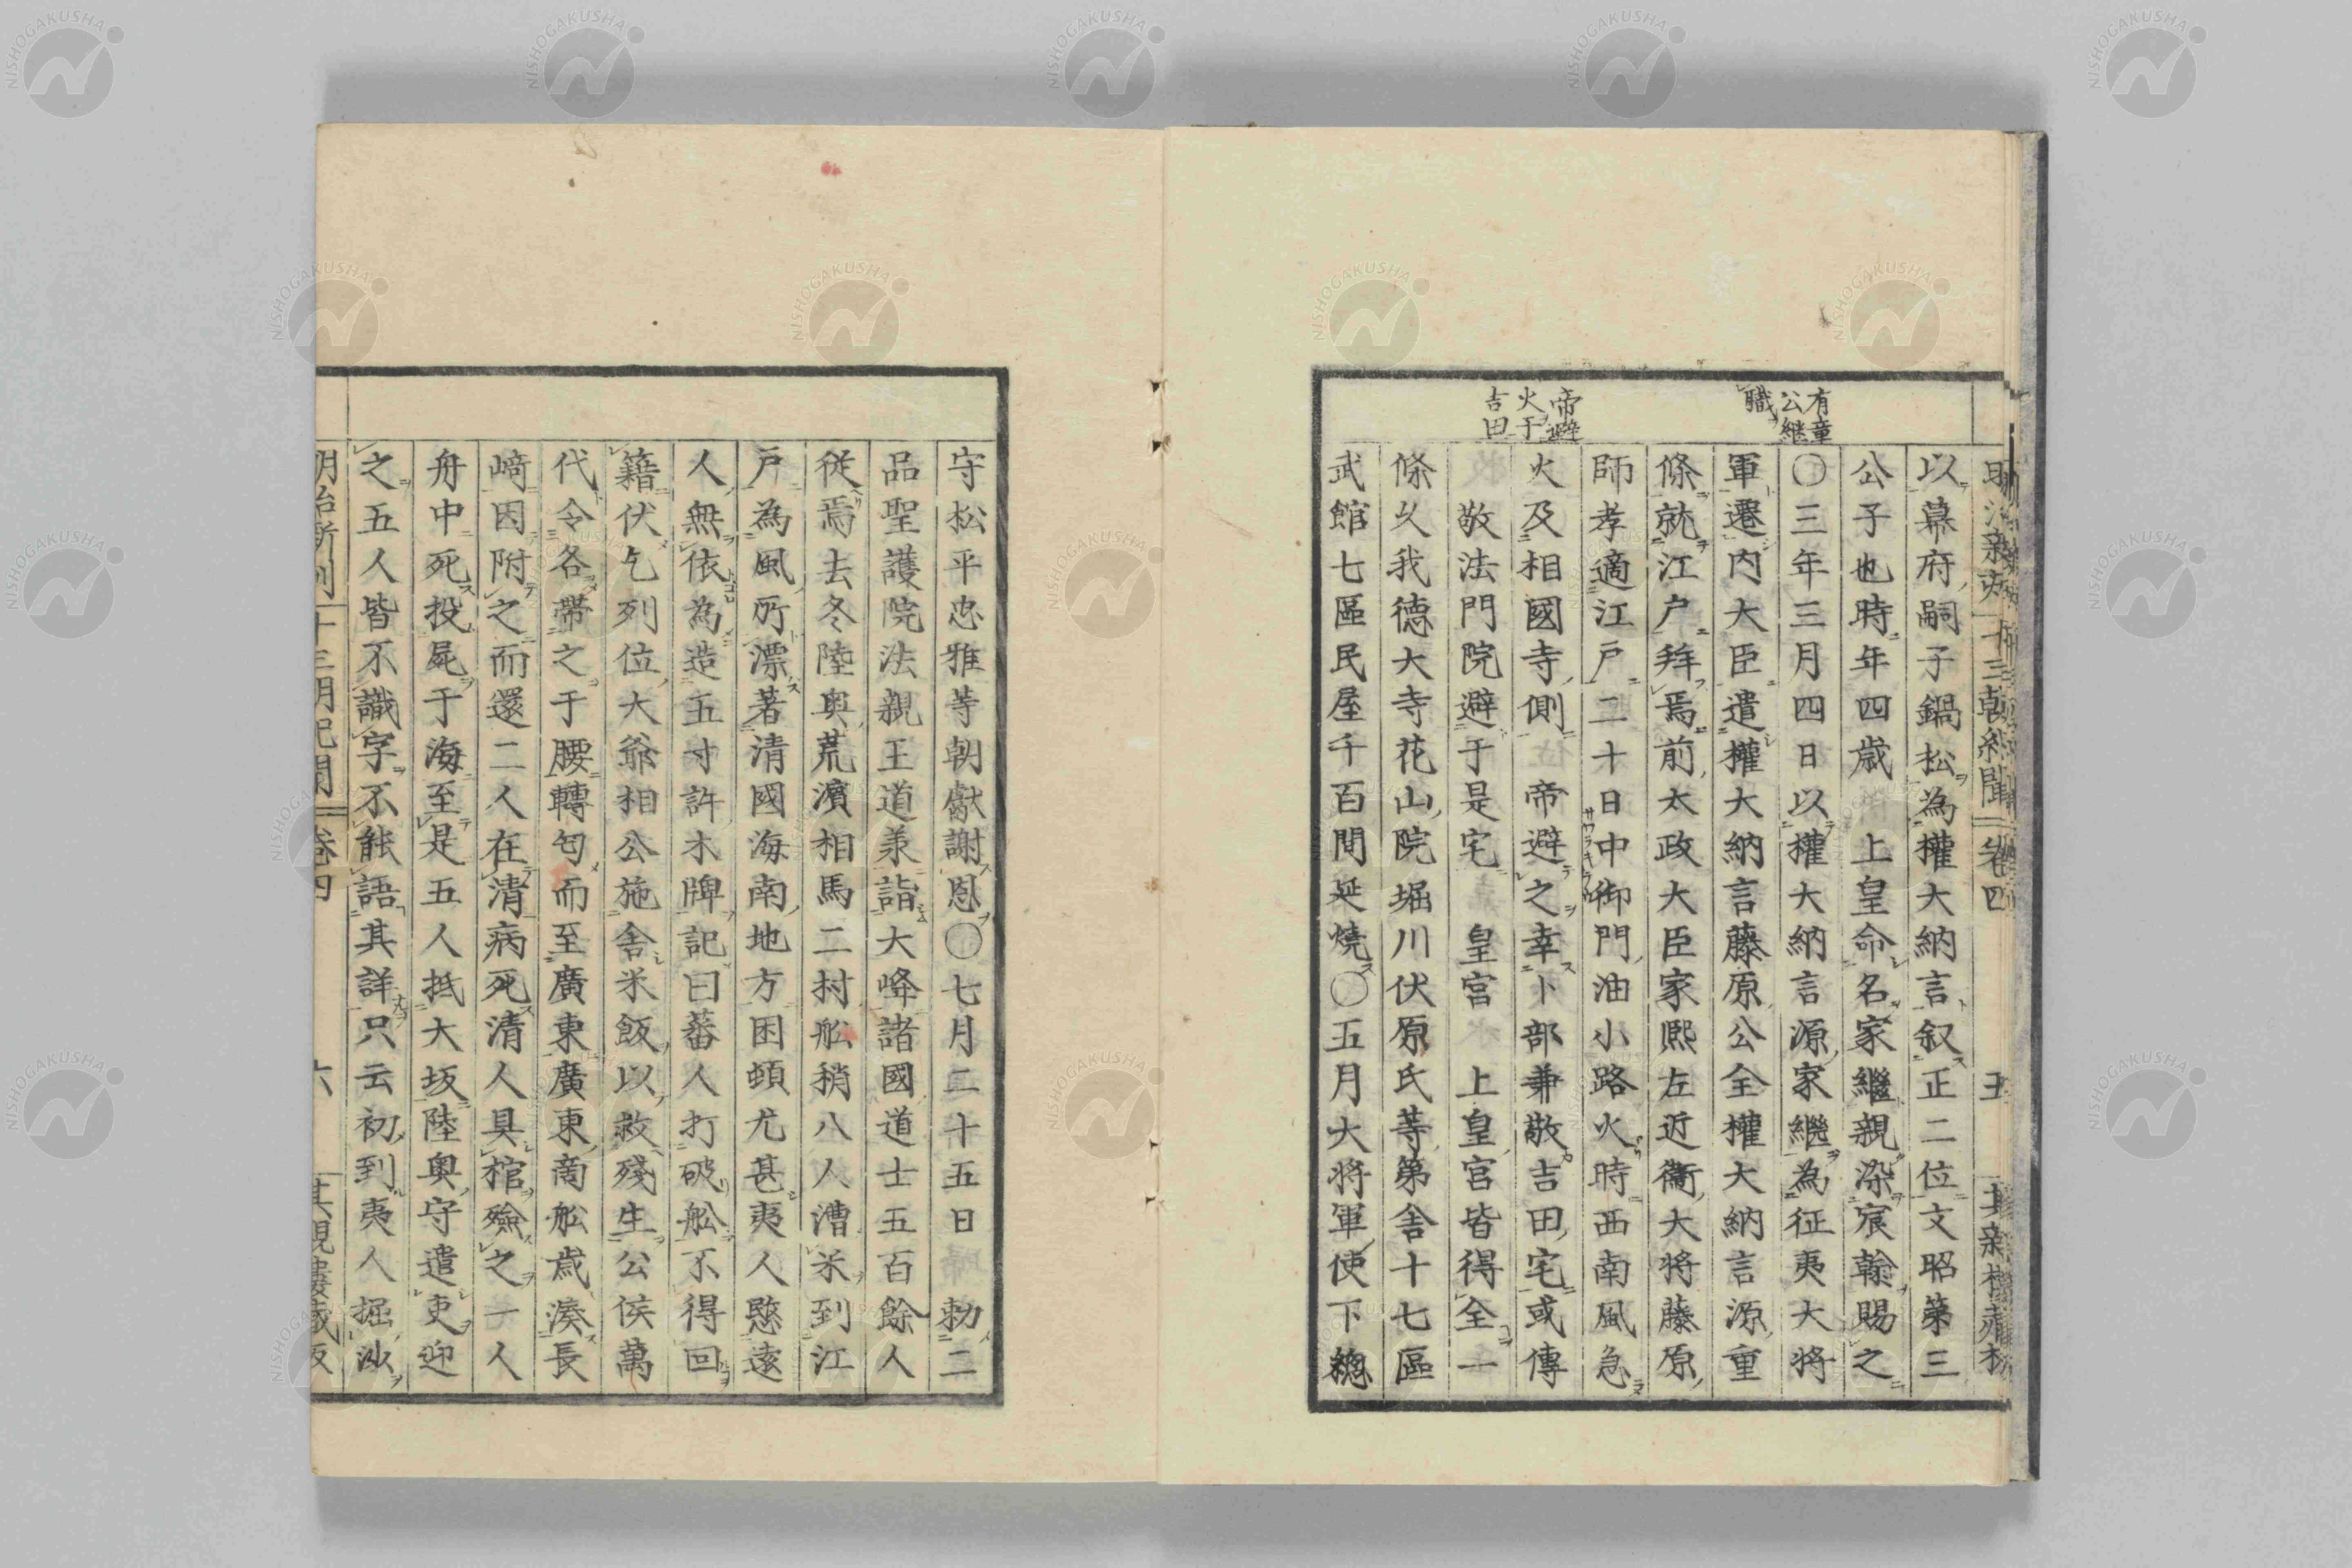 以幕府嗣子鍋松為權大納言叙正二位文昭第三
公子也時年四歳 上皇命名家繼親染宸翰賜之
〇三年三月四日以權大納言源家繼為征夷大將
軍遷内大臣遣權大納言藤原公全權大納言源重
條就江戸拜焉前太政大臣家熙左近衞大將藤原
師孝適江戸二十日中御門油小路火時西南風急
火及相國寺側 帝避之幸卜部兼敬吉田宅或傳
 敬法門院避于是宅 皇宮 上皇宮皆得全一
條久我德大寺花山院堀川伏原氏等第舍十七區
武館七區民屋千百間延燒〇五月大將軍使下總
有章
公繼
職
帝避
火于
吉田
守松平忠雅等朝獻謝恩〇七月二十五日 勅二
品聖護院法親王道兼詣大峰諸國道士五百餘人
從焉去冬陸奥荒濱相馬二村舩稍八人漕米到江
戸為風所漂著清國海南地方困頓尤甚夷人愍遠
人無依為造五寸許木牌記曰蕃人打破舩不得回
籍伏乞列位大爺相公施舍米飯以救殘生公侯萬
代令各帶之于腰轉匄而至廣東廣東商舩歳湊長
﨑因附之而還二人在清病死清人具棺殮之一人
舟中死投屍于海至是五人抵大坂陸奥守遣吏迎
之五人皆不識字不能語其詳只云初到夷人掘沙
明治新刻 十三朝紀聞 卷四
六